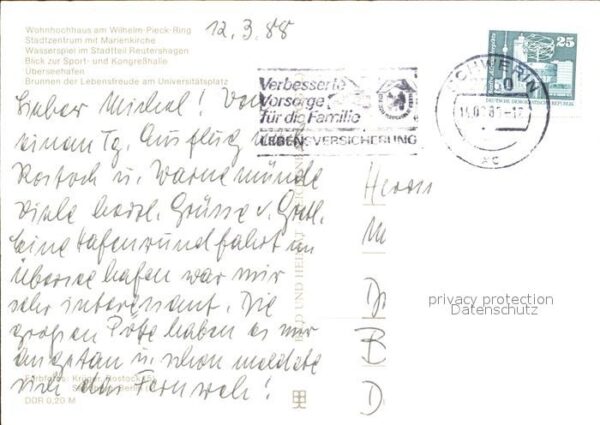 Wohnhochhaus am Wilhelm-Pieck-Ring
Stadtzentrum mit Marienkirche
Wasserspiel im Stadtteil Reutershagen
Blick zur Sport- und Kongreßhalle
Überseehafen
Brunnen der Lebensfreude am Universitätsplatz
12.3.88
Lieber Michel! Von
einem Tg. Ausflug
Rostock u. Warnemünde
viele herzl. Grüsse v. Gretl.
Eine Hafenrundfahrt im
Überseehafen war mir
sehr interessant. Die
großen Pötte haben es mir
angetan u. schon meldete
sich das Fernweh!
Farbfotos: Krüger, Rostock
DDR 0,20 M
BILD UND HEIMAT REICHENBACH
Verbesserte
Vorsorge
für die Familie
LEBENSVERSICHERUNG
SCHWERIN
25
DEUTSCHE DEMOKRATISCHE REPUBLIK
Herrn
M
D
B
D
privacy protection
Datenschutz